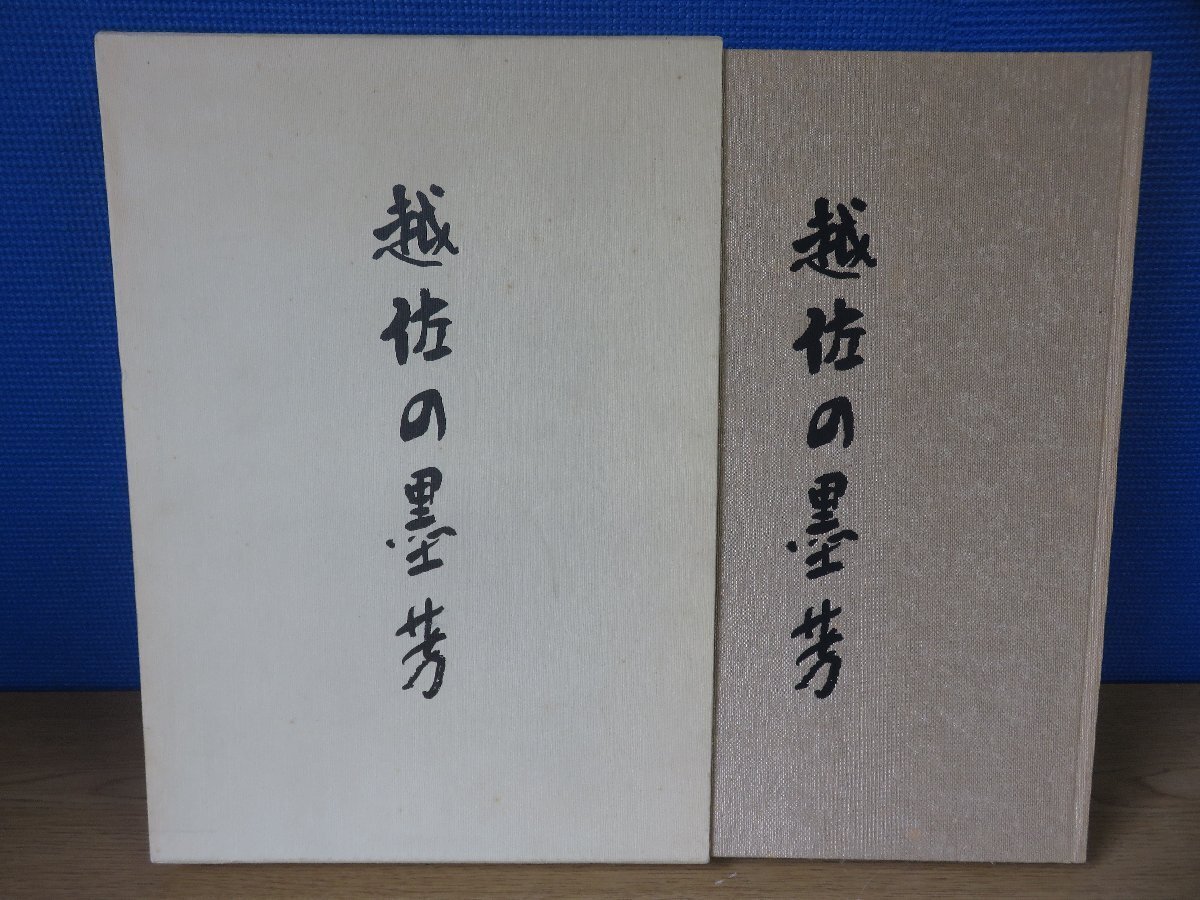 越佐の墨芳
越佐の墨芳